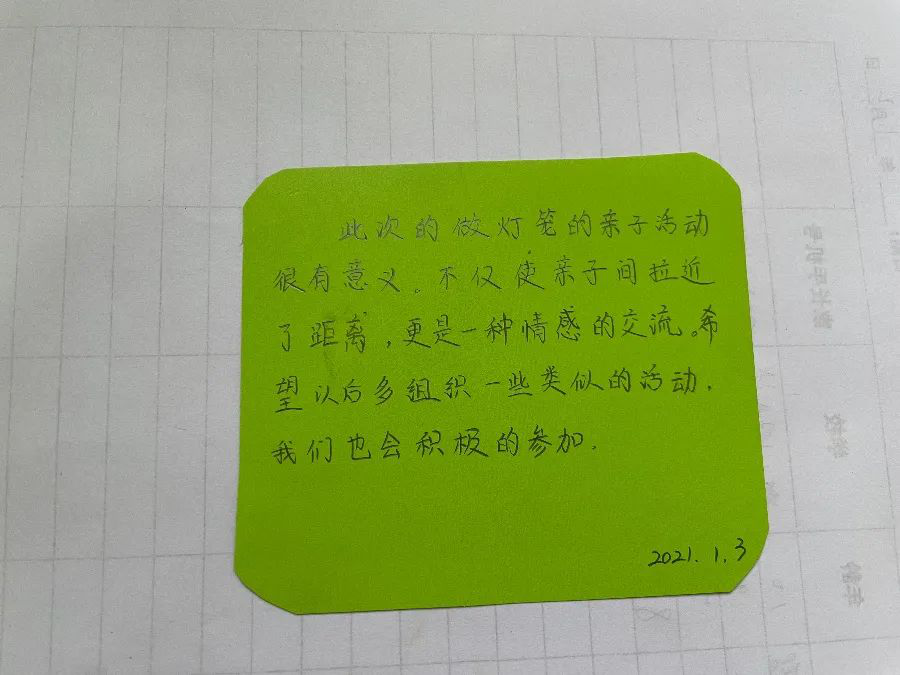 此次的做灯笼的亲子活动
很有意义。不仅使亲子间拉近
了距离,更是一种情感的交流。希
望以后多组织一些类似的活动.
我们也会积极的参加.
2021.1.3